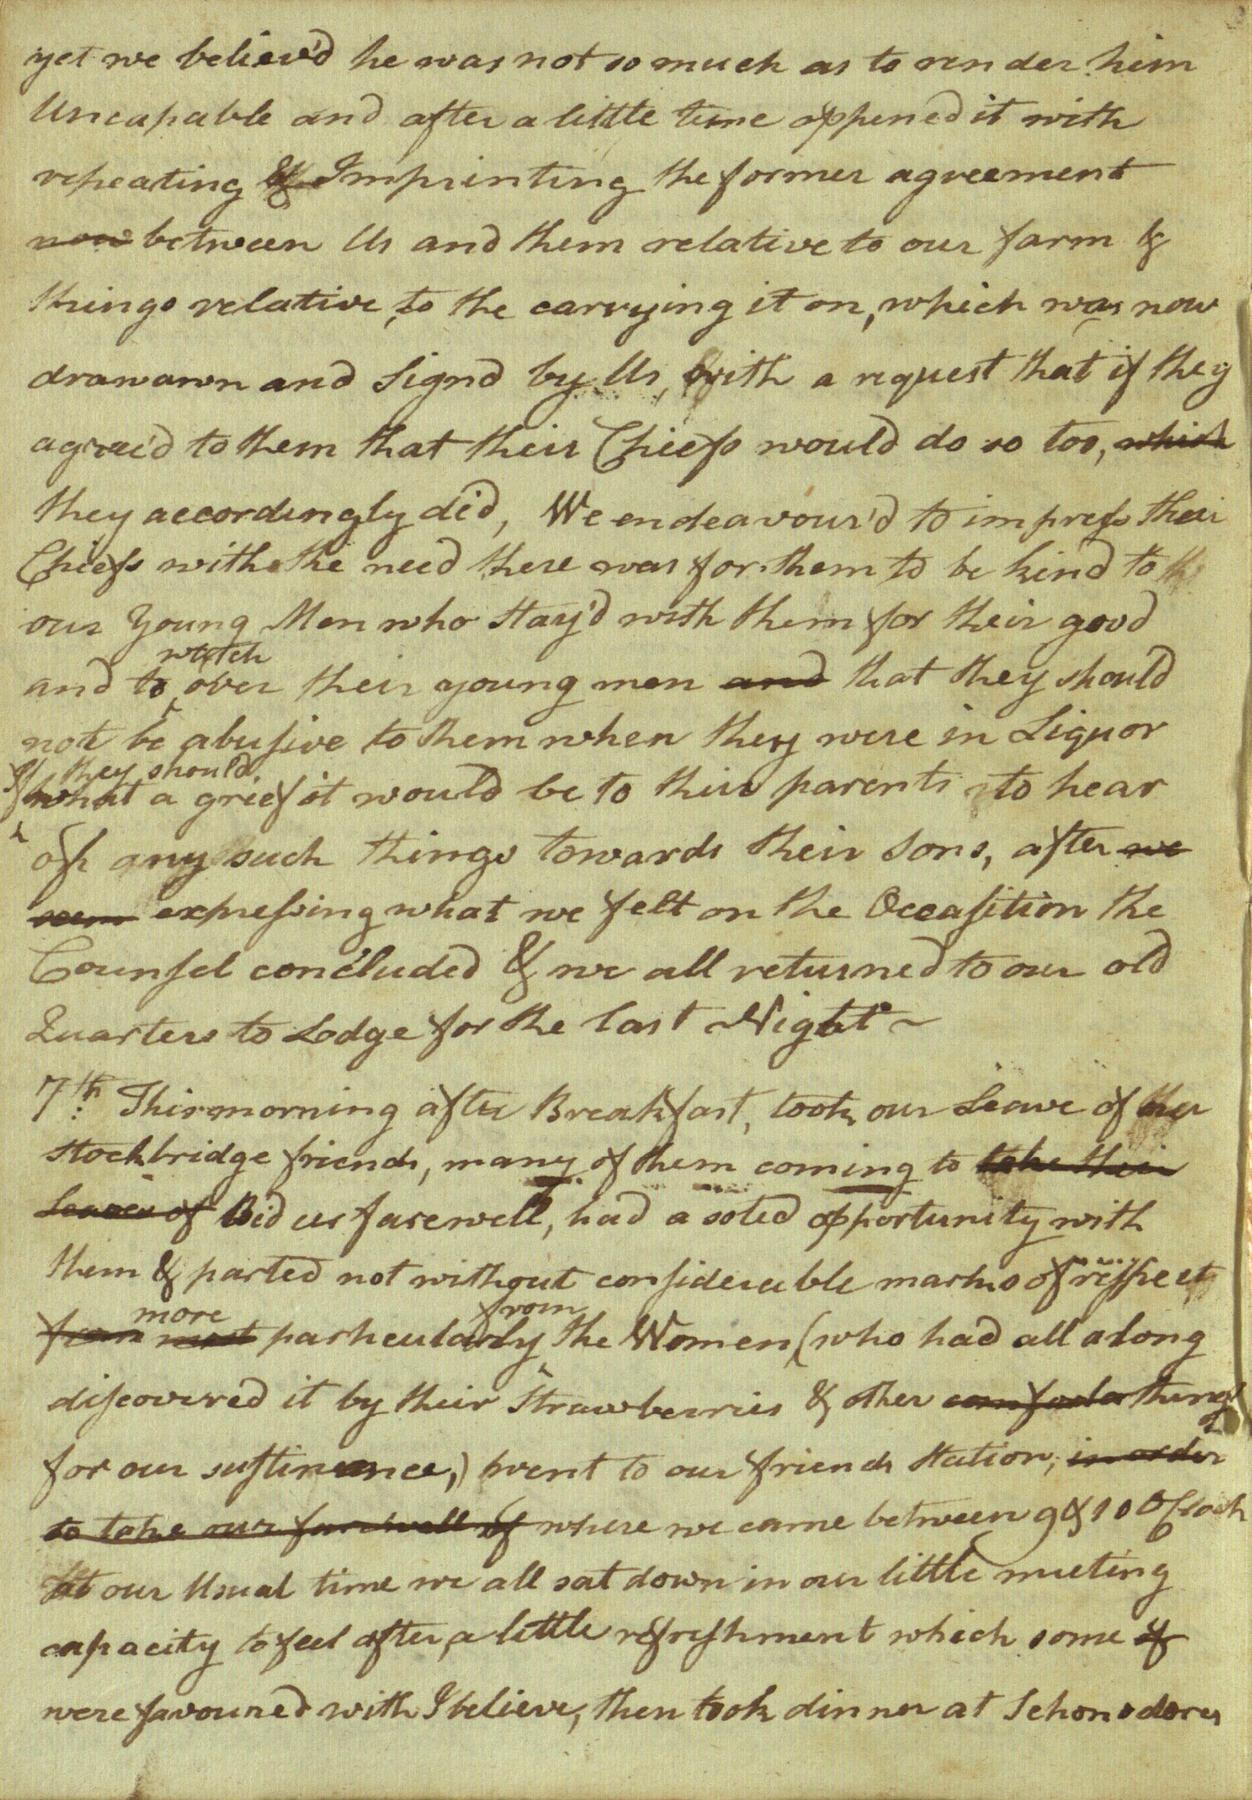 yet we believ'd he was not so much as to render him
Uncapable and after a little time oppened it with
repeating & Imprinting the former agreement
now between Us and them relative to our farm &
things relative to the carrying it on, which was now
drawawn and Signd by Us, with a request that if they
agree'd to them that their Chiefs would do so too, which
they accordingly did, We endeavour'd to impress their
Chiefs with the need there was for them to be kind to
our Young Men who Stay'd with them for their good
watch
and to over their young men and that they should
not be abusive to them when they were in Liquor
If they should
what a grief it would be to their parents to hear
of any such things towards their Sons, after we
seem expressing what we felt on the Occasition the
Counsel concluded & we all returned to our old
Quarters to Lodge for the last Night ~
7th This morning after Breakfast, took our Leave of our
Stockbridge friends, many of them coming to take their
Leaves of Bid us farewell, had a solid opportunity with
them & parted not without considerable marks of respect
more from
from most particularly the Women (who had all along
discovered it by their Strawberries & other things
for our sustinance,) went to our friends Station, in order
to take our farewell of where we came between 9 & 10 OClock
At our Usual time we all sat down in our little meeting
capacity to feel after a little refreshment which some of
were favoured with I believe, then took dinner at Schonodores